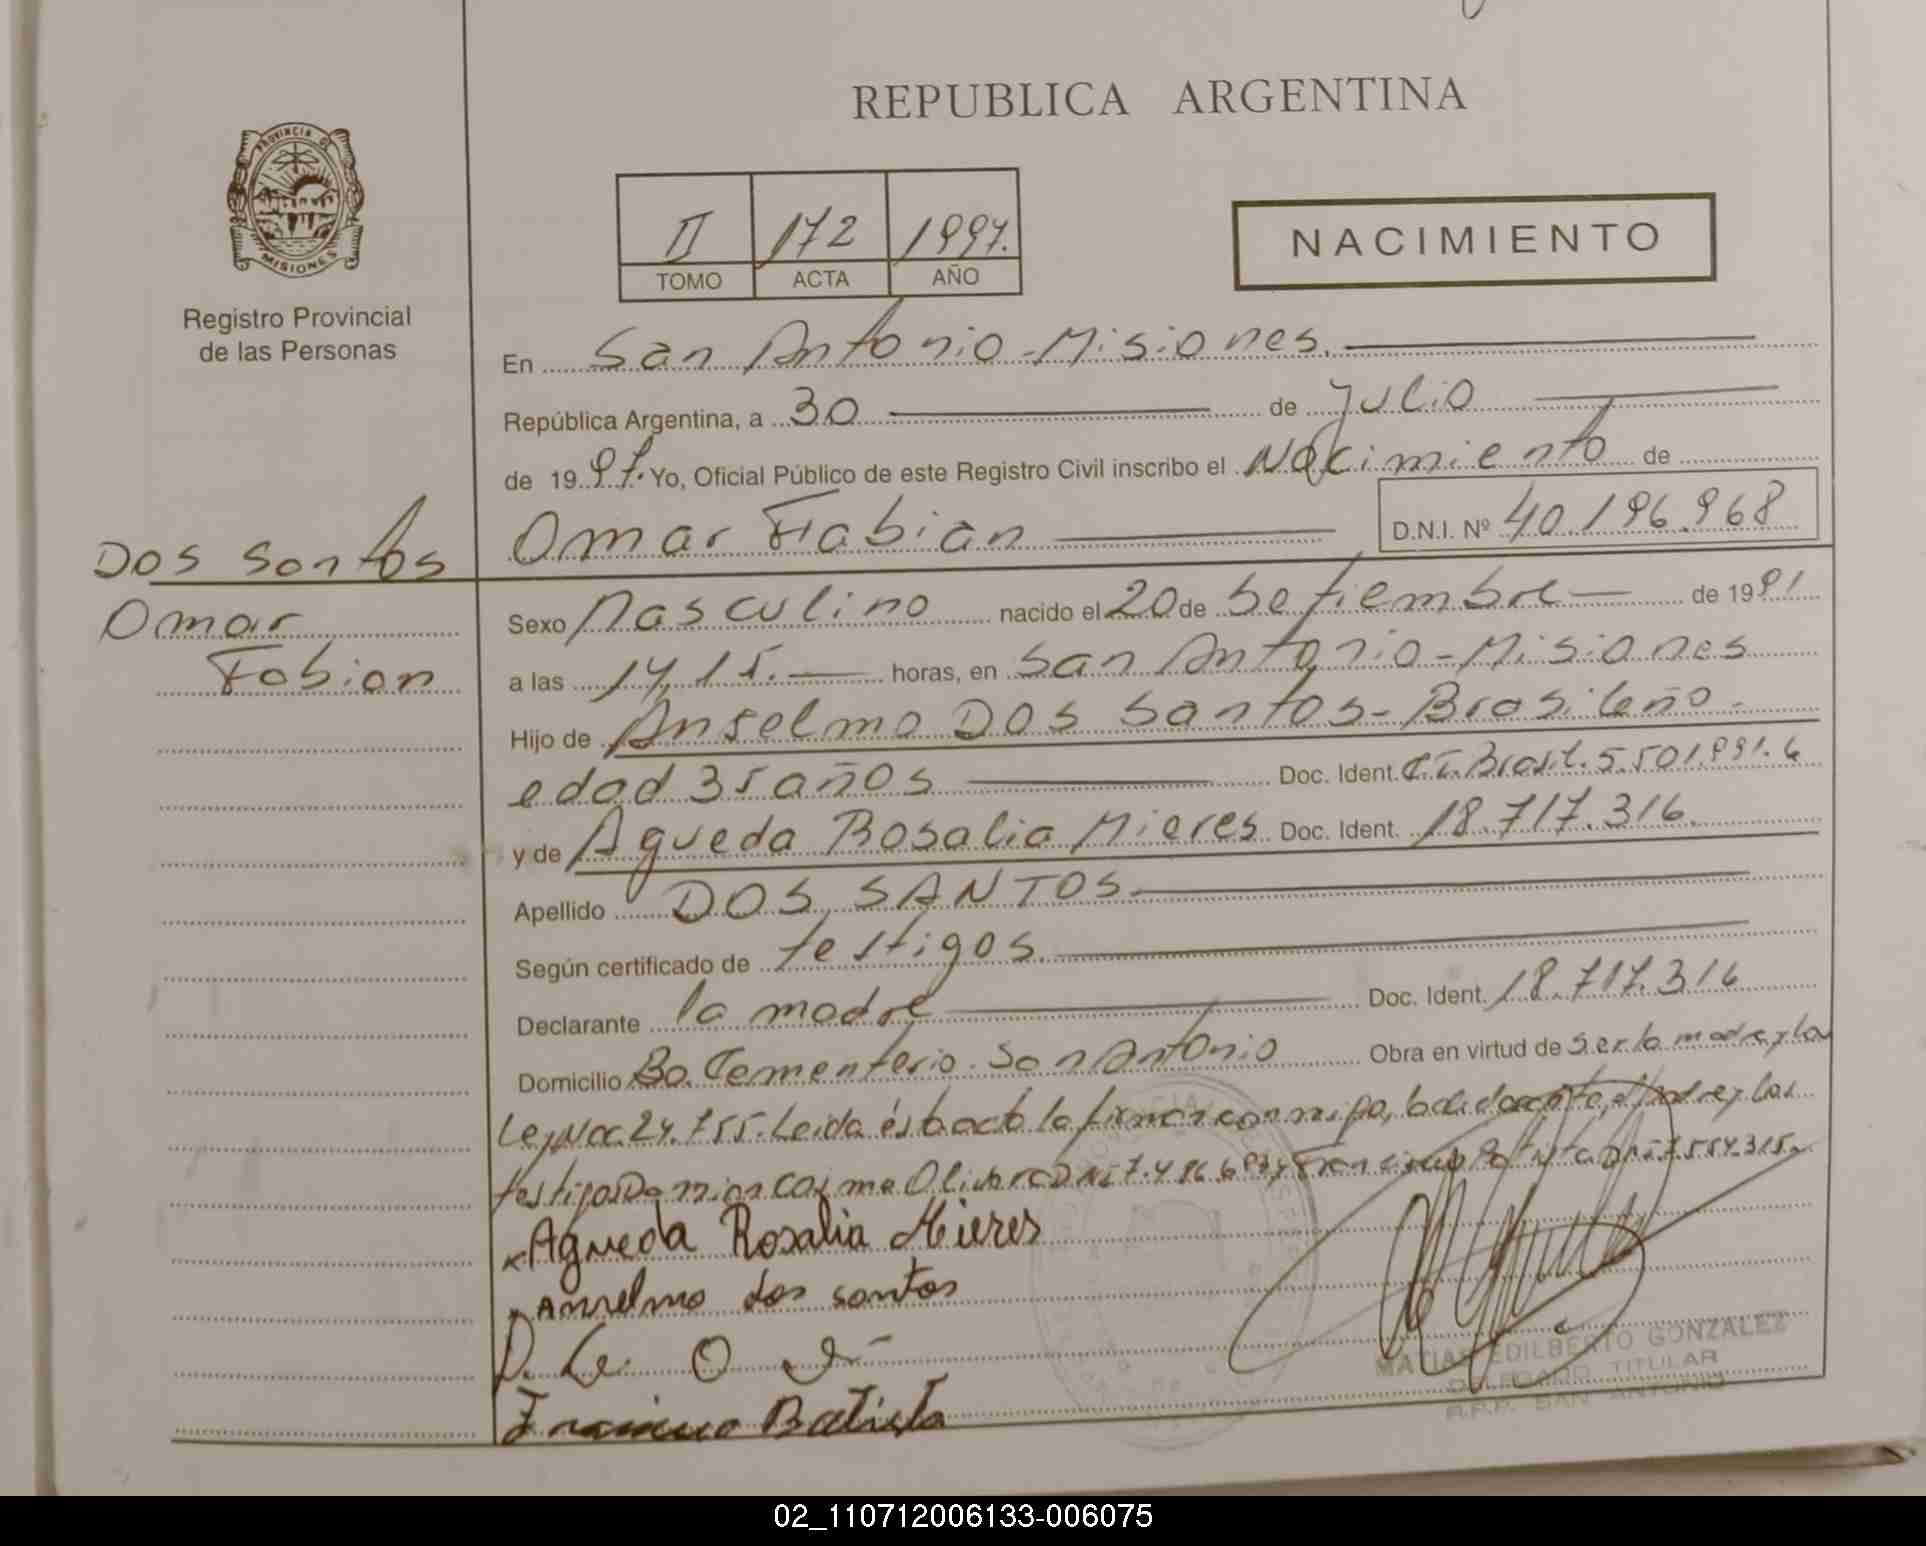 REPUBLICA ARGENTINA
PROVINCIA DE
MISIONES
Registro Provincial
de las Personas
II 172 1997.
TOMO ACTA AÑO
NACIMIENTO
En San Antonio - Misiones.
República Argentina, a 30 de Julio
de 1997. Yo, Oficial Público de este Registro Civil inscribo el Nacimiento de
Omar Fabian D.N.I. Nº 40.196.968
Dos Santos
Omar
Fabian
Sexo Masculino nacido el 20 de Setiembre de 1991
a las 14,15. horas, en San Antonio - Misiones
Hijo de Anselmo Dos Santos - Brasileño -
edad 35 años Doc. Ident. C.I. Brasil. 5.501.991.6
y de Agueda Rosalia Mieres Doc. Ident. 18.717.316.
Apellido DOS SANTOS
Según certificado de testigos.
Declarante la madre Doc. Ident. 18.717.316
Domicilio Bo. Cementerio. San Antonio Obra en virtud de ser la madre y la
Ley No 24.755. Leida ésta acta la firman conmigo, la declarante, el padre y los
testigos Damian Cosme Olivera DNI 7.486.6 y Francisco Batista DNI 7.554.315
Agueda Rosalia Mieres
Anselmo dos santos
D. C. O
Francisco Batista
MATIAS EDILBERTO GONZALEZ
DELEGADO TITULAR
R.P.P. SAN ANTONIO
02_110712006133-006075